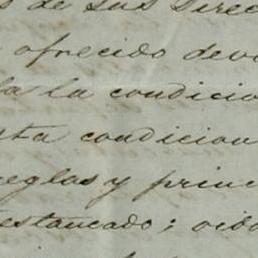 de sus Direc
ofrecido devo
la la condicio
sta condicion
reglas y princ
estancado; oido